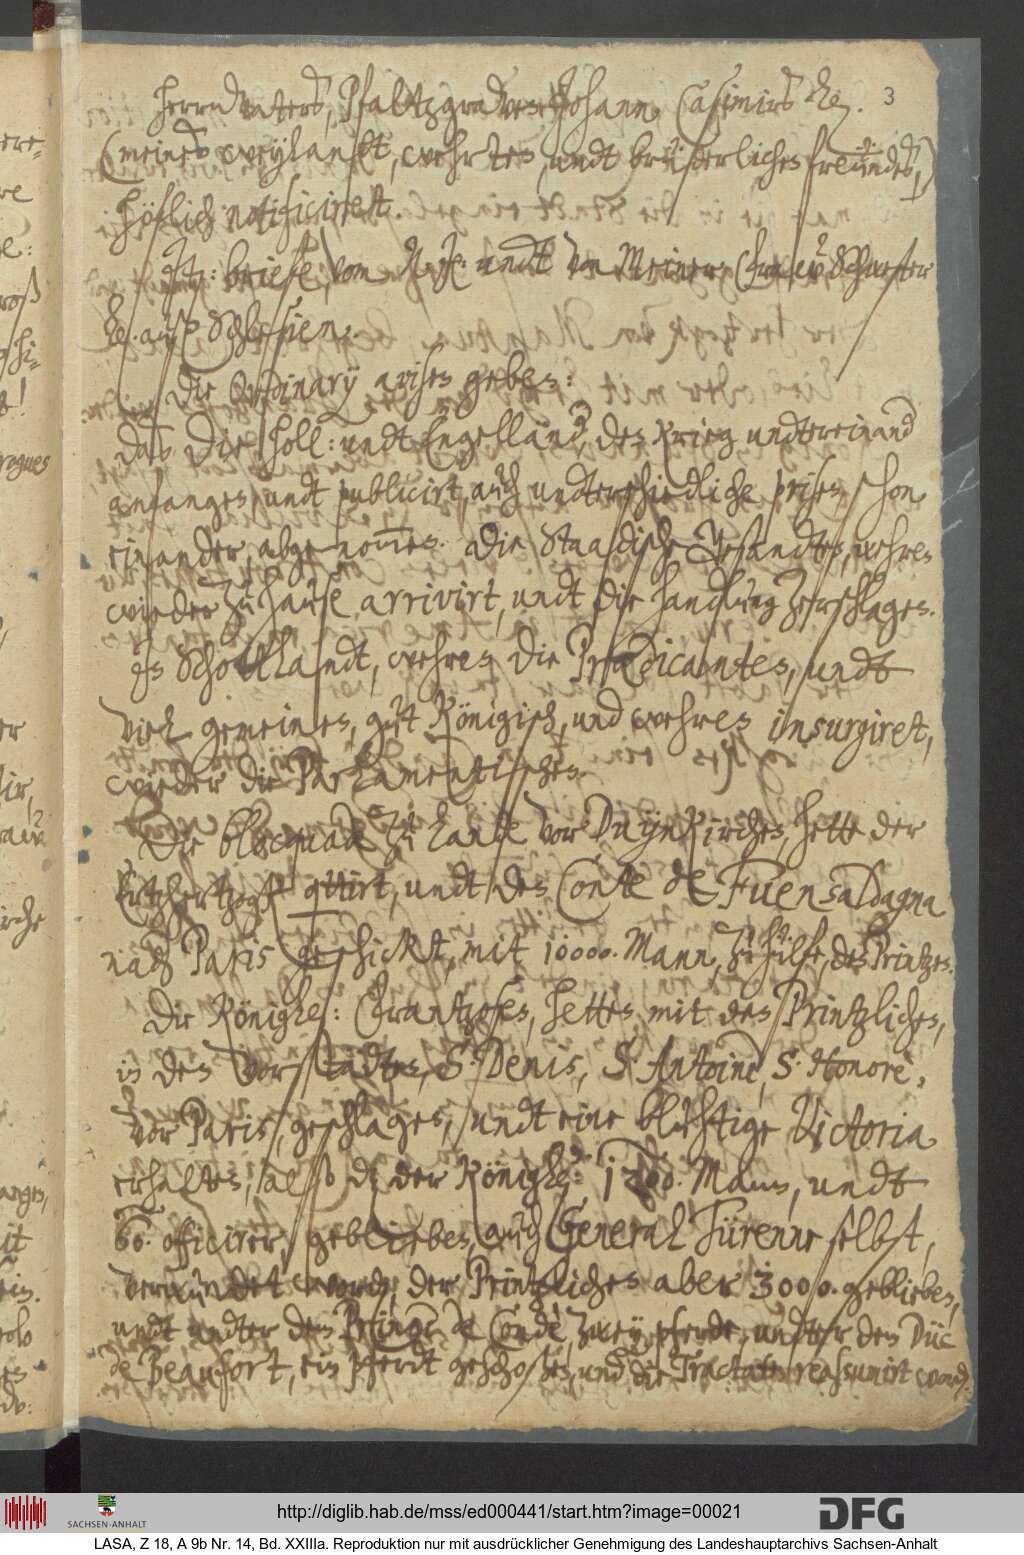 3
Herrn Vaters, Pfaltzgravens Johann Casimirs
(meines weylandt, wehrten, undt brüderlichen freündes,)
höflich notificiret.
Jtem: briefe, vom undt von Meiner Schwester
auß Schlesien.
Die Ordinarÿ avisen geben:
Das die Holl: undt Engelländer, den Krieg undtereinander
anfangen, undt publicirt, auch undterschiedliche prisen schon
einander, abgenommen. Die Staadische Gesandten, wehren
wieder zu hause arrivirt, undt die handlung zerschlagen.
Jn Schottlandt, wehren die Prædicanten, undt
viel gemeines, gut Königisch, und wehren insurgiret,
wieder die Parlamentischen.
Die blocquade zu lande vor Duÿnkirchen, hette der
Ertzhertzogk quittirt, undt den Conte de Fuensaldagna
nach Paris geschickt, mit 10000. Mann, zu hülfe, des Printzen.
Die Königlichen: Frantzosen, hetten mit den Printzlichen,
in den Vorstädten, S. Denis, S. Antoine, S. Honorè,
vor Paris, geschlagen, undt eine bluhtige Victoria
erhalten, also daß der Königlichen: 1200. Mann, undt
60. officirer, geblieben, auch General Türenne selbst,
verwundet worden, der Printzlichen aber 3000. geblieben,
undt undter dem Prince de Condè, zweÿ pferde, undter dem Düc
de Beaufort, ein pferdt geschoßen, und die Tractaten reassumirt word.
http://diglib.hab.de/mss/ed000441/start.htm?image=00021
SACHSEN-ANHALT
DFG
LASA, Z 18, A 9b Nr. 14, Bd. XXIIIa. Reproduktion nur mit ausdrücklicher Genehmigung des Landeshauptarchivs Sachsen-Anhalt